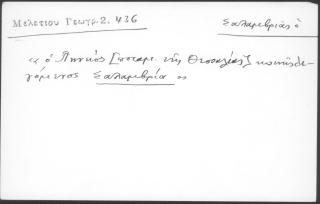 Μελετίου Γεωγρ. 2. 436
Σαλαμβριᾶς ὁ
« ὁ Πηνειός [ποταμ. τῆς Θεσσαλίας] κοινῶς λε-
γόμενος Σαλαμβρία »